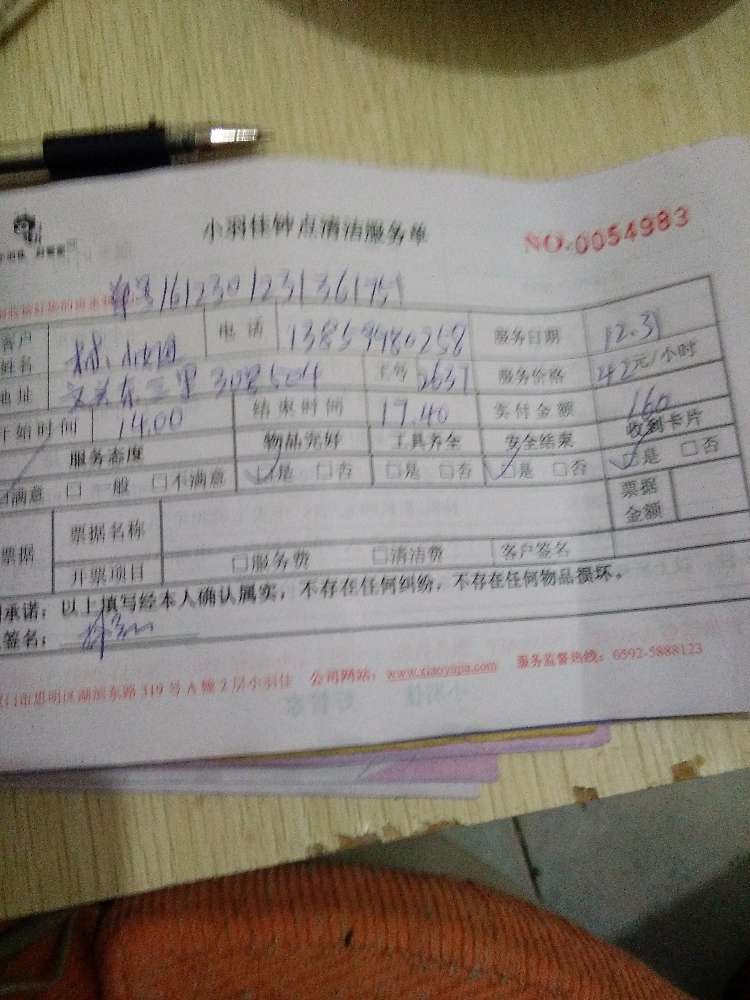 小羽佳钟点清洁服务单
NO.0054983
单号161230123136175
姓名 电话 13859980258 服务日期 12.31
地址 308 504 卡号 2637 服务价格 42元/小时
开始时间 14.00 结束时间 17.40 实付金额 160
服务态度 物品完好 工具齐全 安全结束 收到卡片
□满意 □一般 □不满意 □是 □否 □是 □否 □是 □否 □是 □否
票据 票据名称 票据金额
开票项目 □服务费 □清洁费 客户签名
承诺：以上填写经本人确认属实，不存在任何纠纷，不存在任何物品损坏。
签名：
门市思明区湖滨东路319号A幢2层小羽佳 公司网站：www.xiaoyujia.com 服务监督热线：0592-5888123